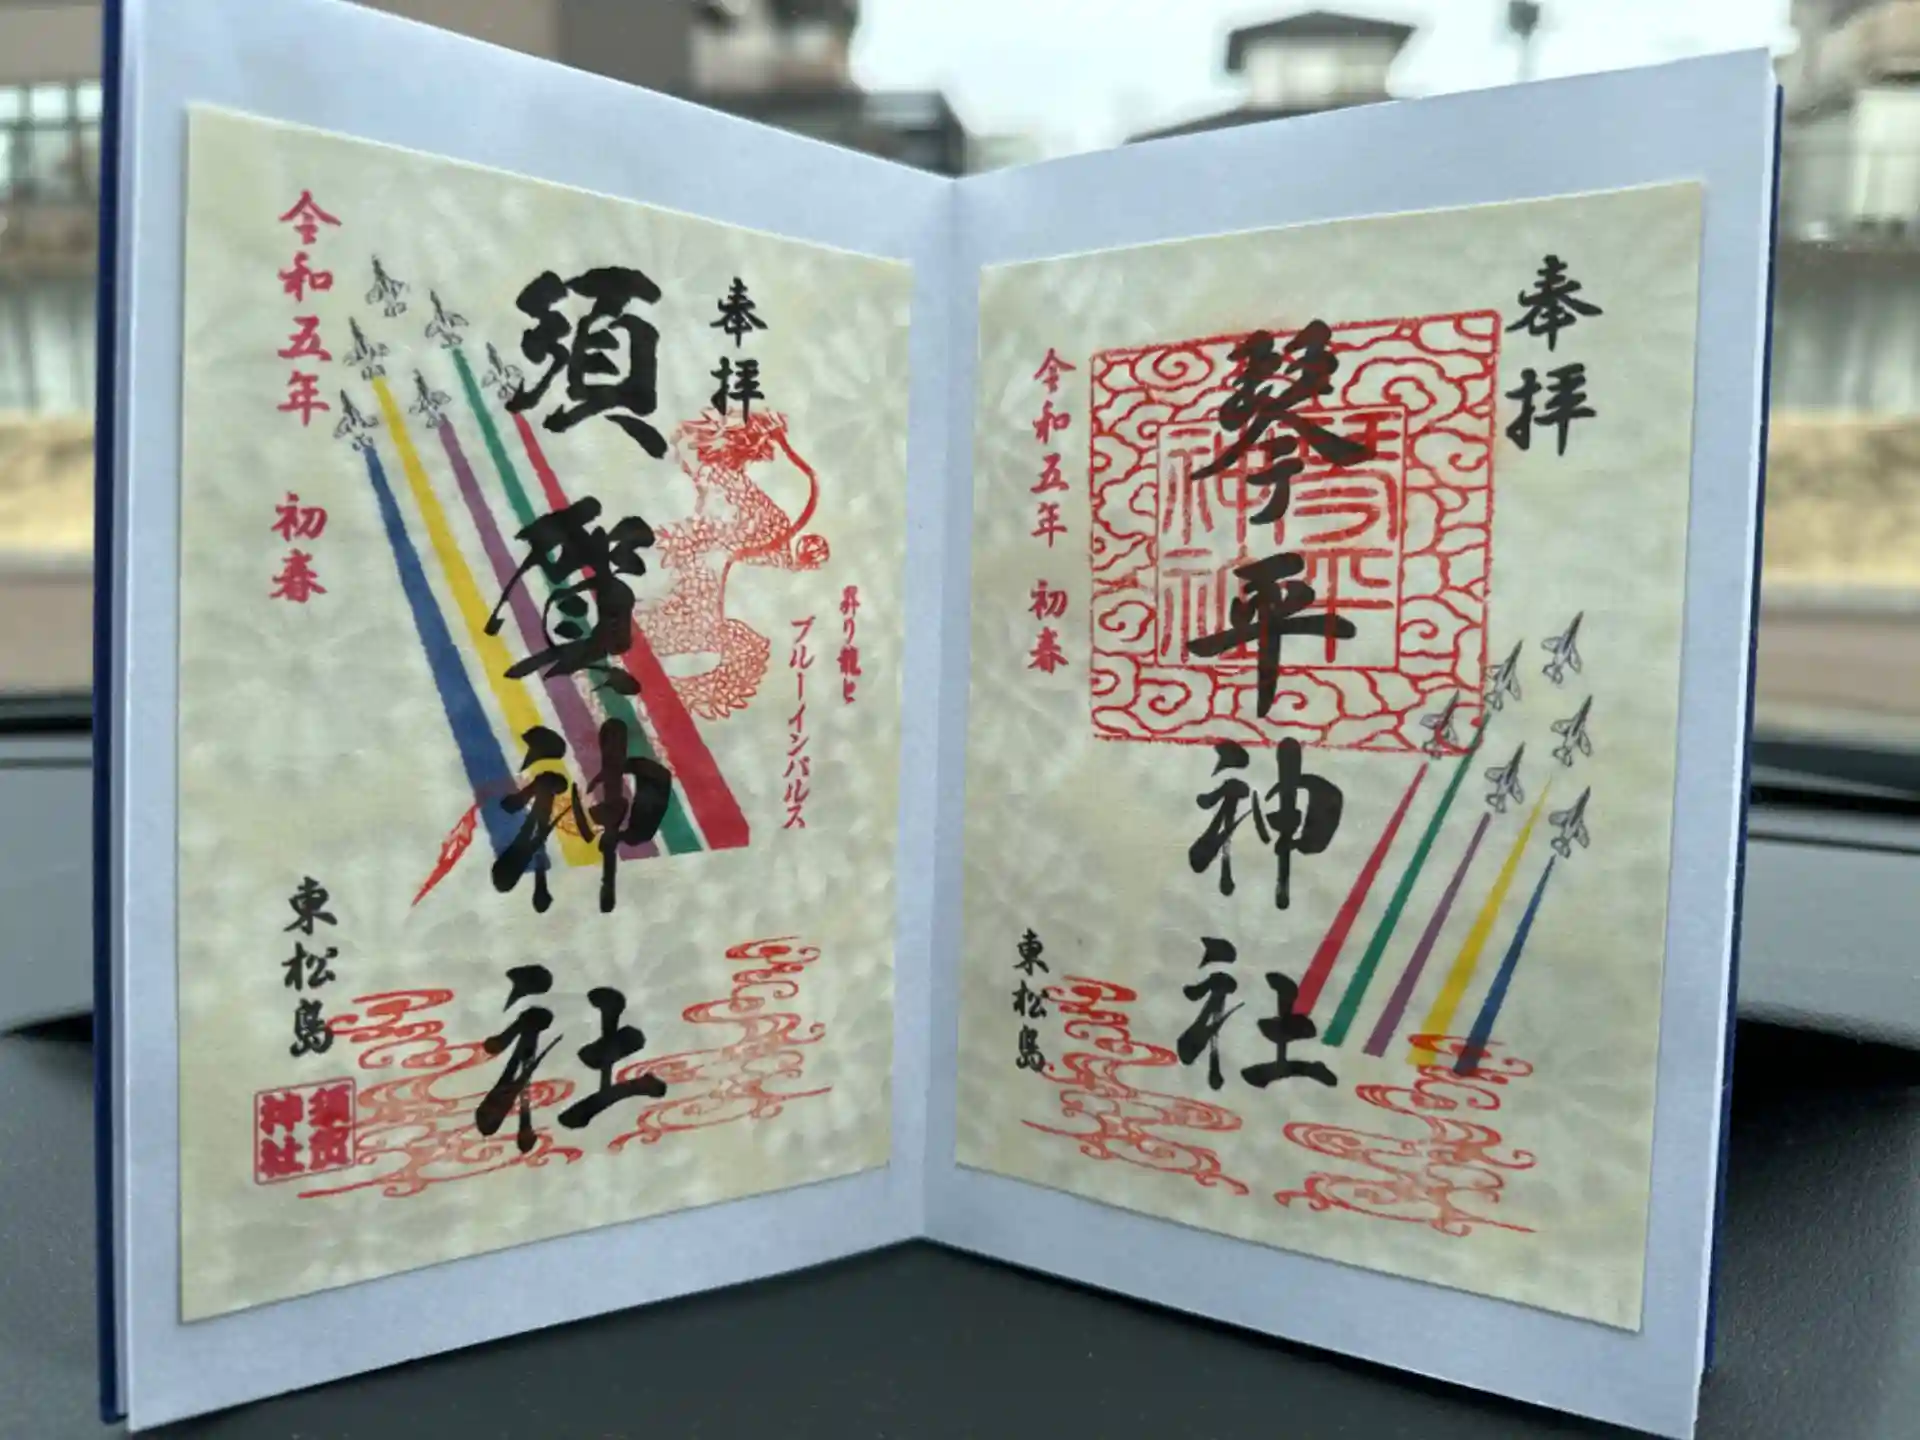 奉拝
琴平神社
琴平
神社
令和五年 初春
東松島
奉拝
須賀神社
昇り龍と
ブルーインパルス
令和五年 初春
東松島
須賀
神社